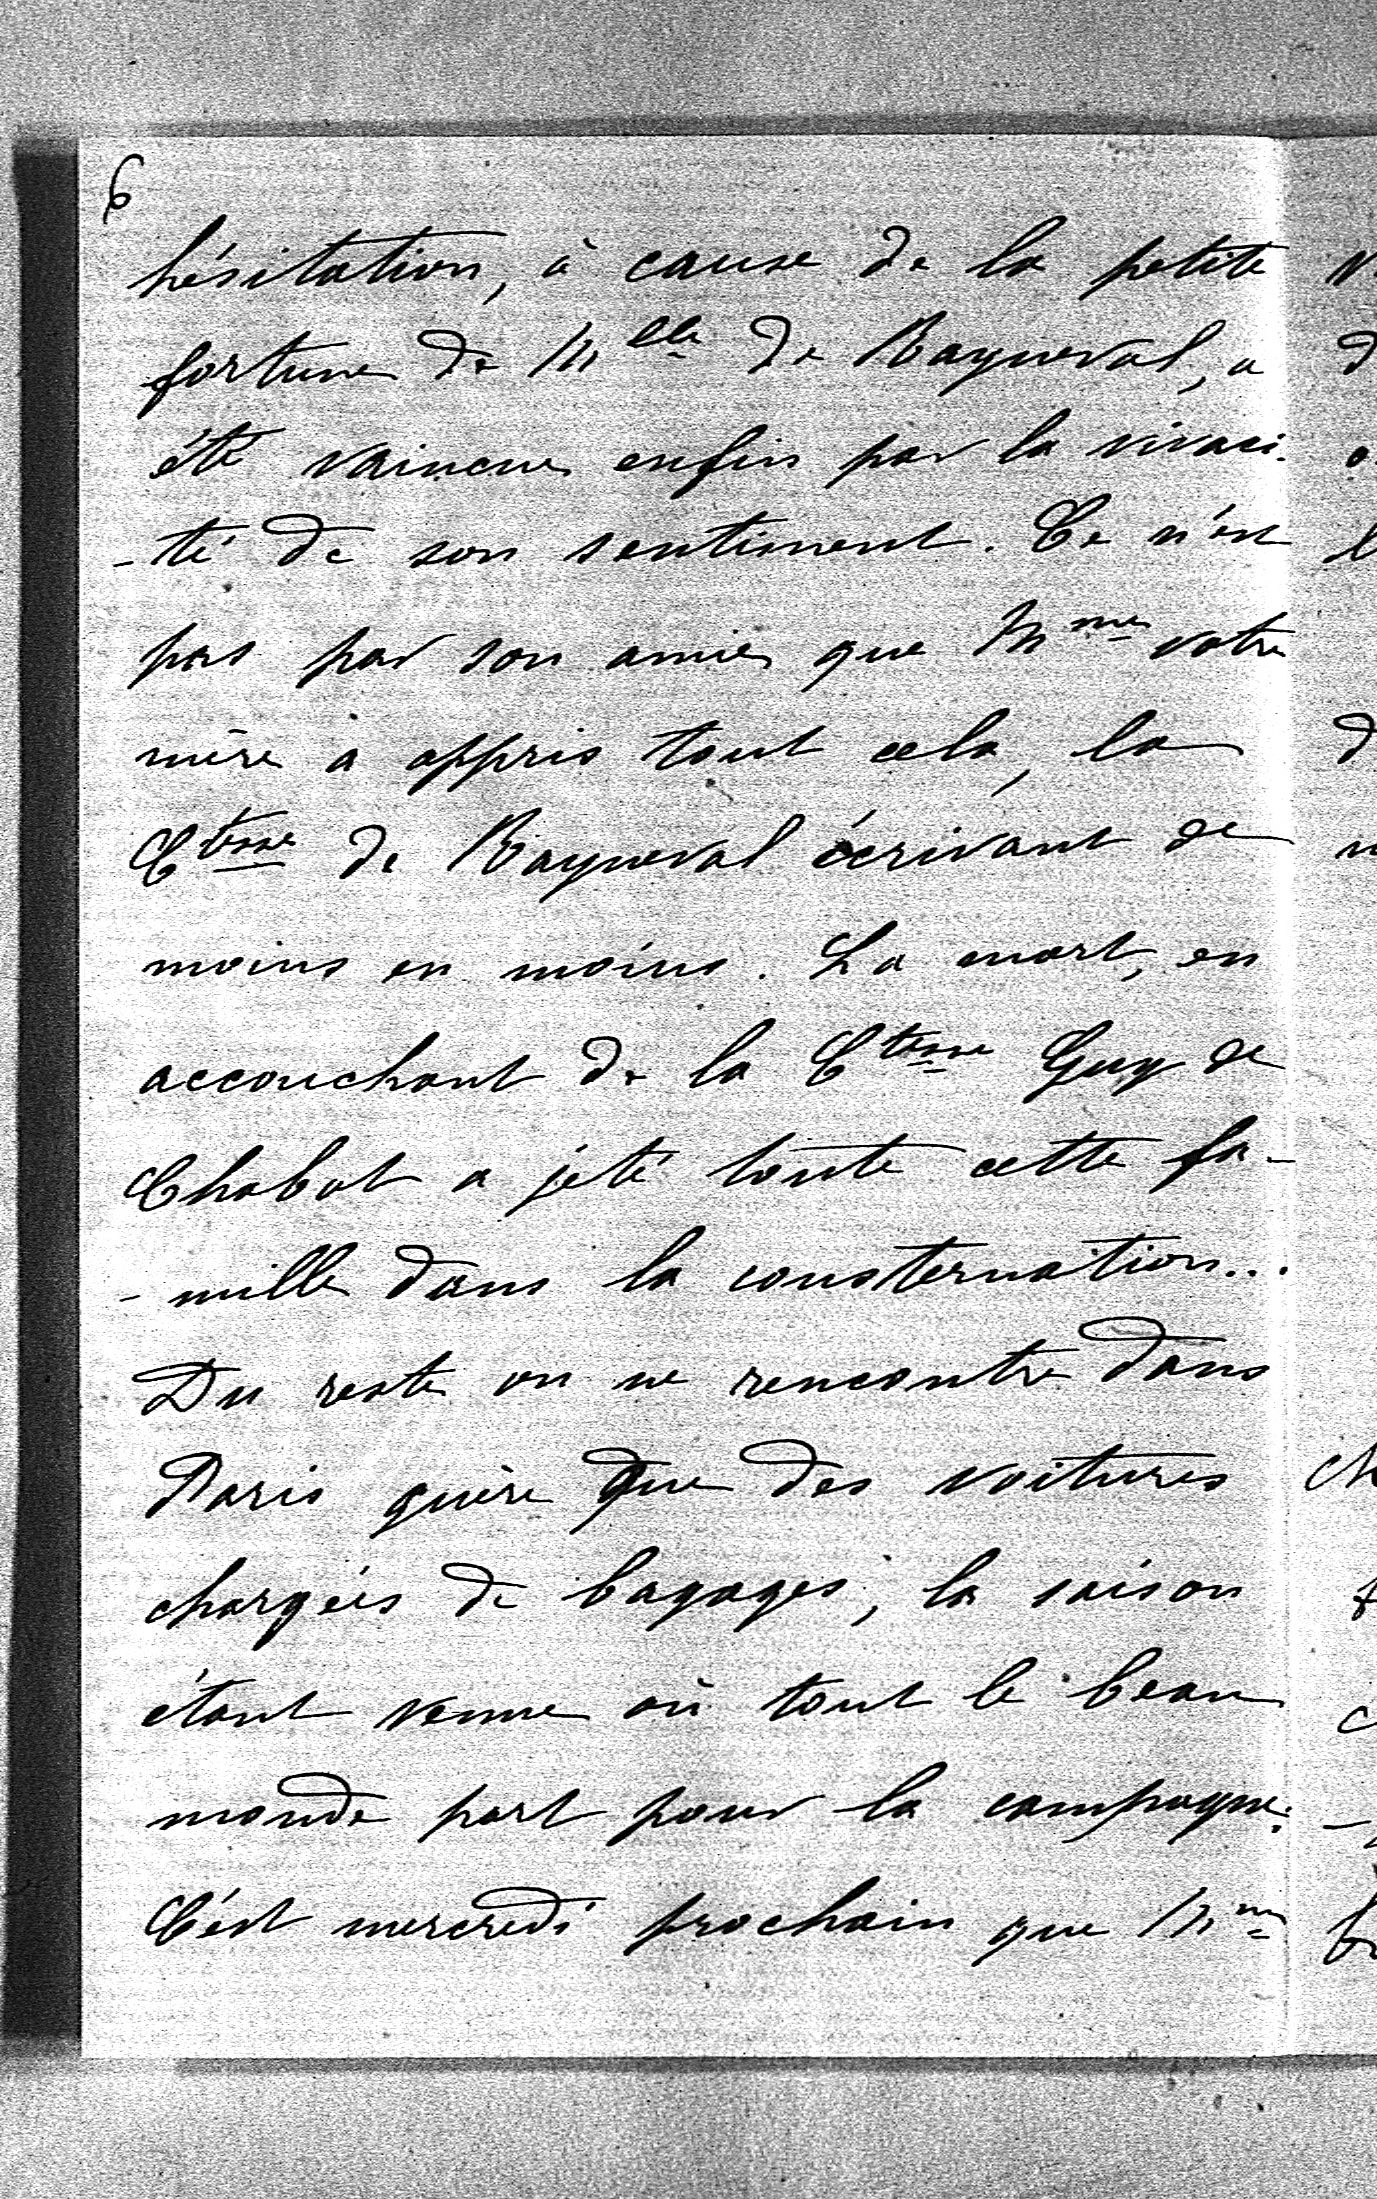 6
hésitation, à cause de la petite
fortune de Mlle de Rayneval, a
été vaincue enfin par la vivaci-
-té de son sentiment. Ce n'est
pas par son amie que Mme votre
mère a appris tout cela, la
Ctesse de Rayneval écrivant de
moins en moins. La mort, en
accouchant de la Ctesse Guy de
Chabot a jeté toute cette fa-
-mille dans la consternation...
Du reste on ne rencontre dans
Paris guère que des voitures
chargées de bagages, la saison
étant venue où tout le beau
monde part pour la campagne.
C'est mercredi prochain que Mme